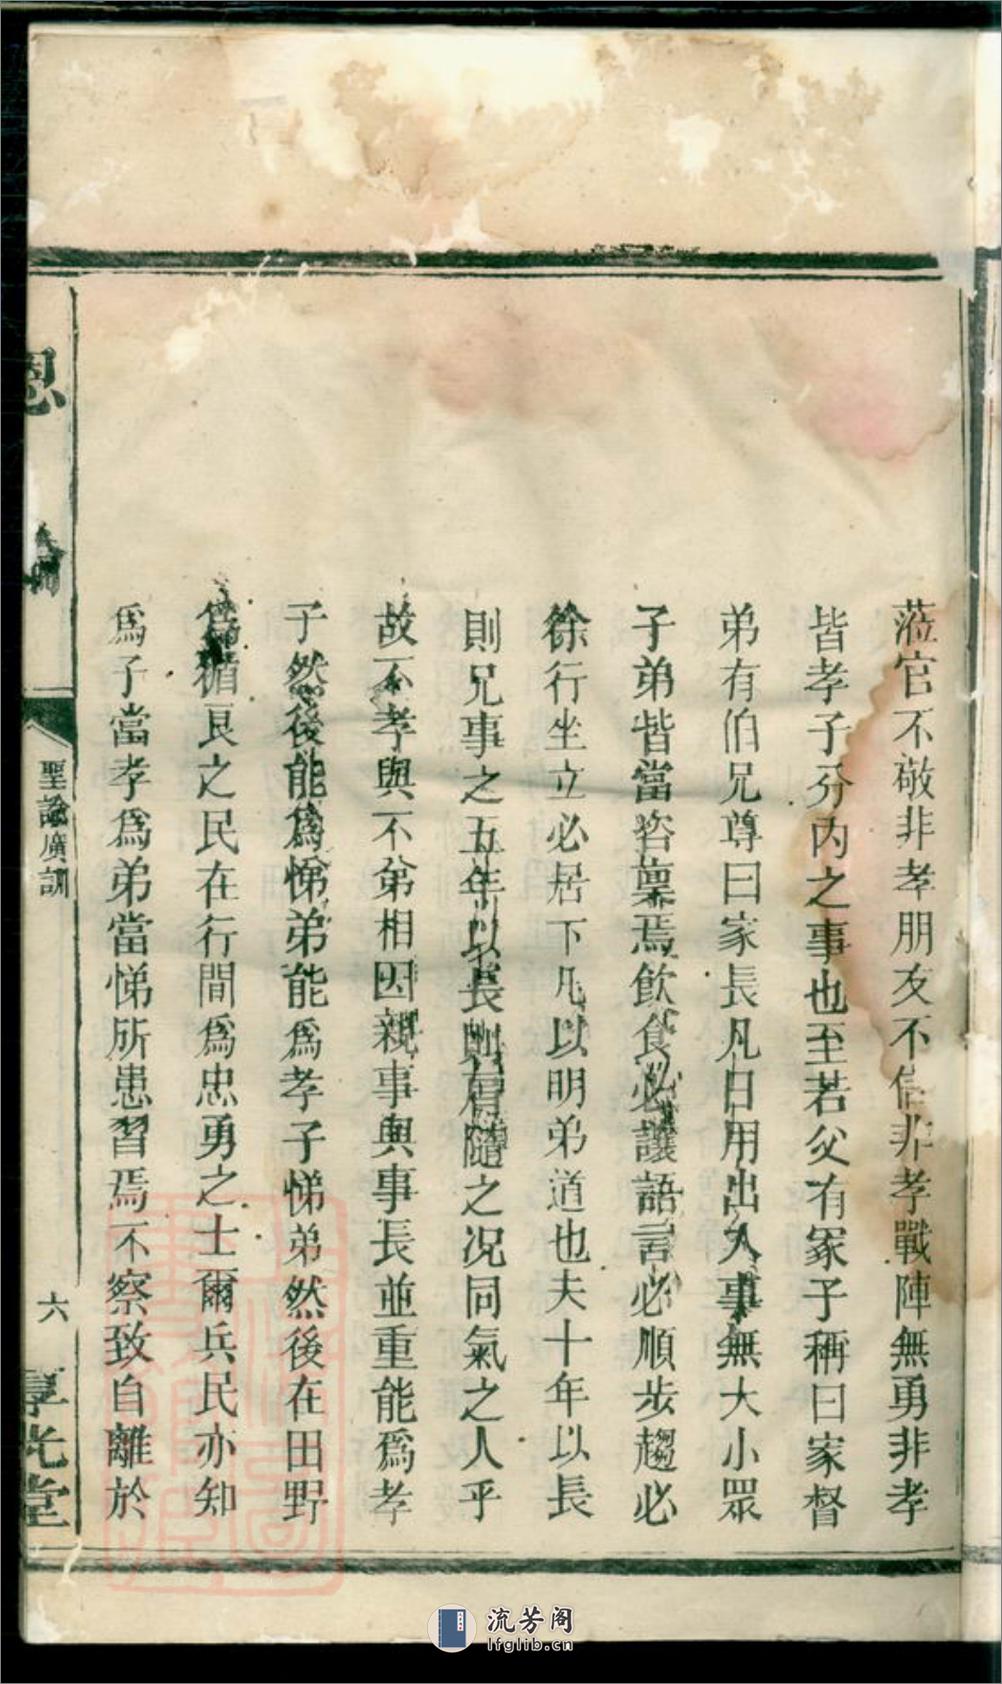 蒞官不敬非孝朋友不信非孝戰陣無勇非孝
皆孝子分内之事也至若父有冢子稱曰家督
弟有伯兄尊曰家長凡日用出入事無大小眾
子弟皆當咨稟焉飲食必讓語言必順步趨必
徐行坐立必居下凡以明弟道也夫十年以長
則兄事之五年以長則肩隨之况同氣之人乎
故不孝與不弟相因親事與事長並重能爲孝
子然後能爲悌弟能爲孝子悌弟然後在田野
爲循良之民在行間爲忠勇之士爾兵民亦知
爲子當孝爲弟當悌所患習焉不察致自離於
恩
聖諭廣訓
六
享光堂
流芳阁
lfglib.cn